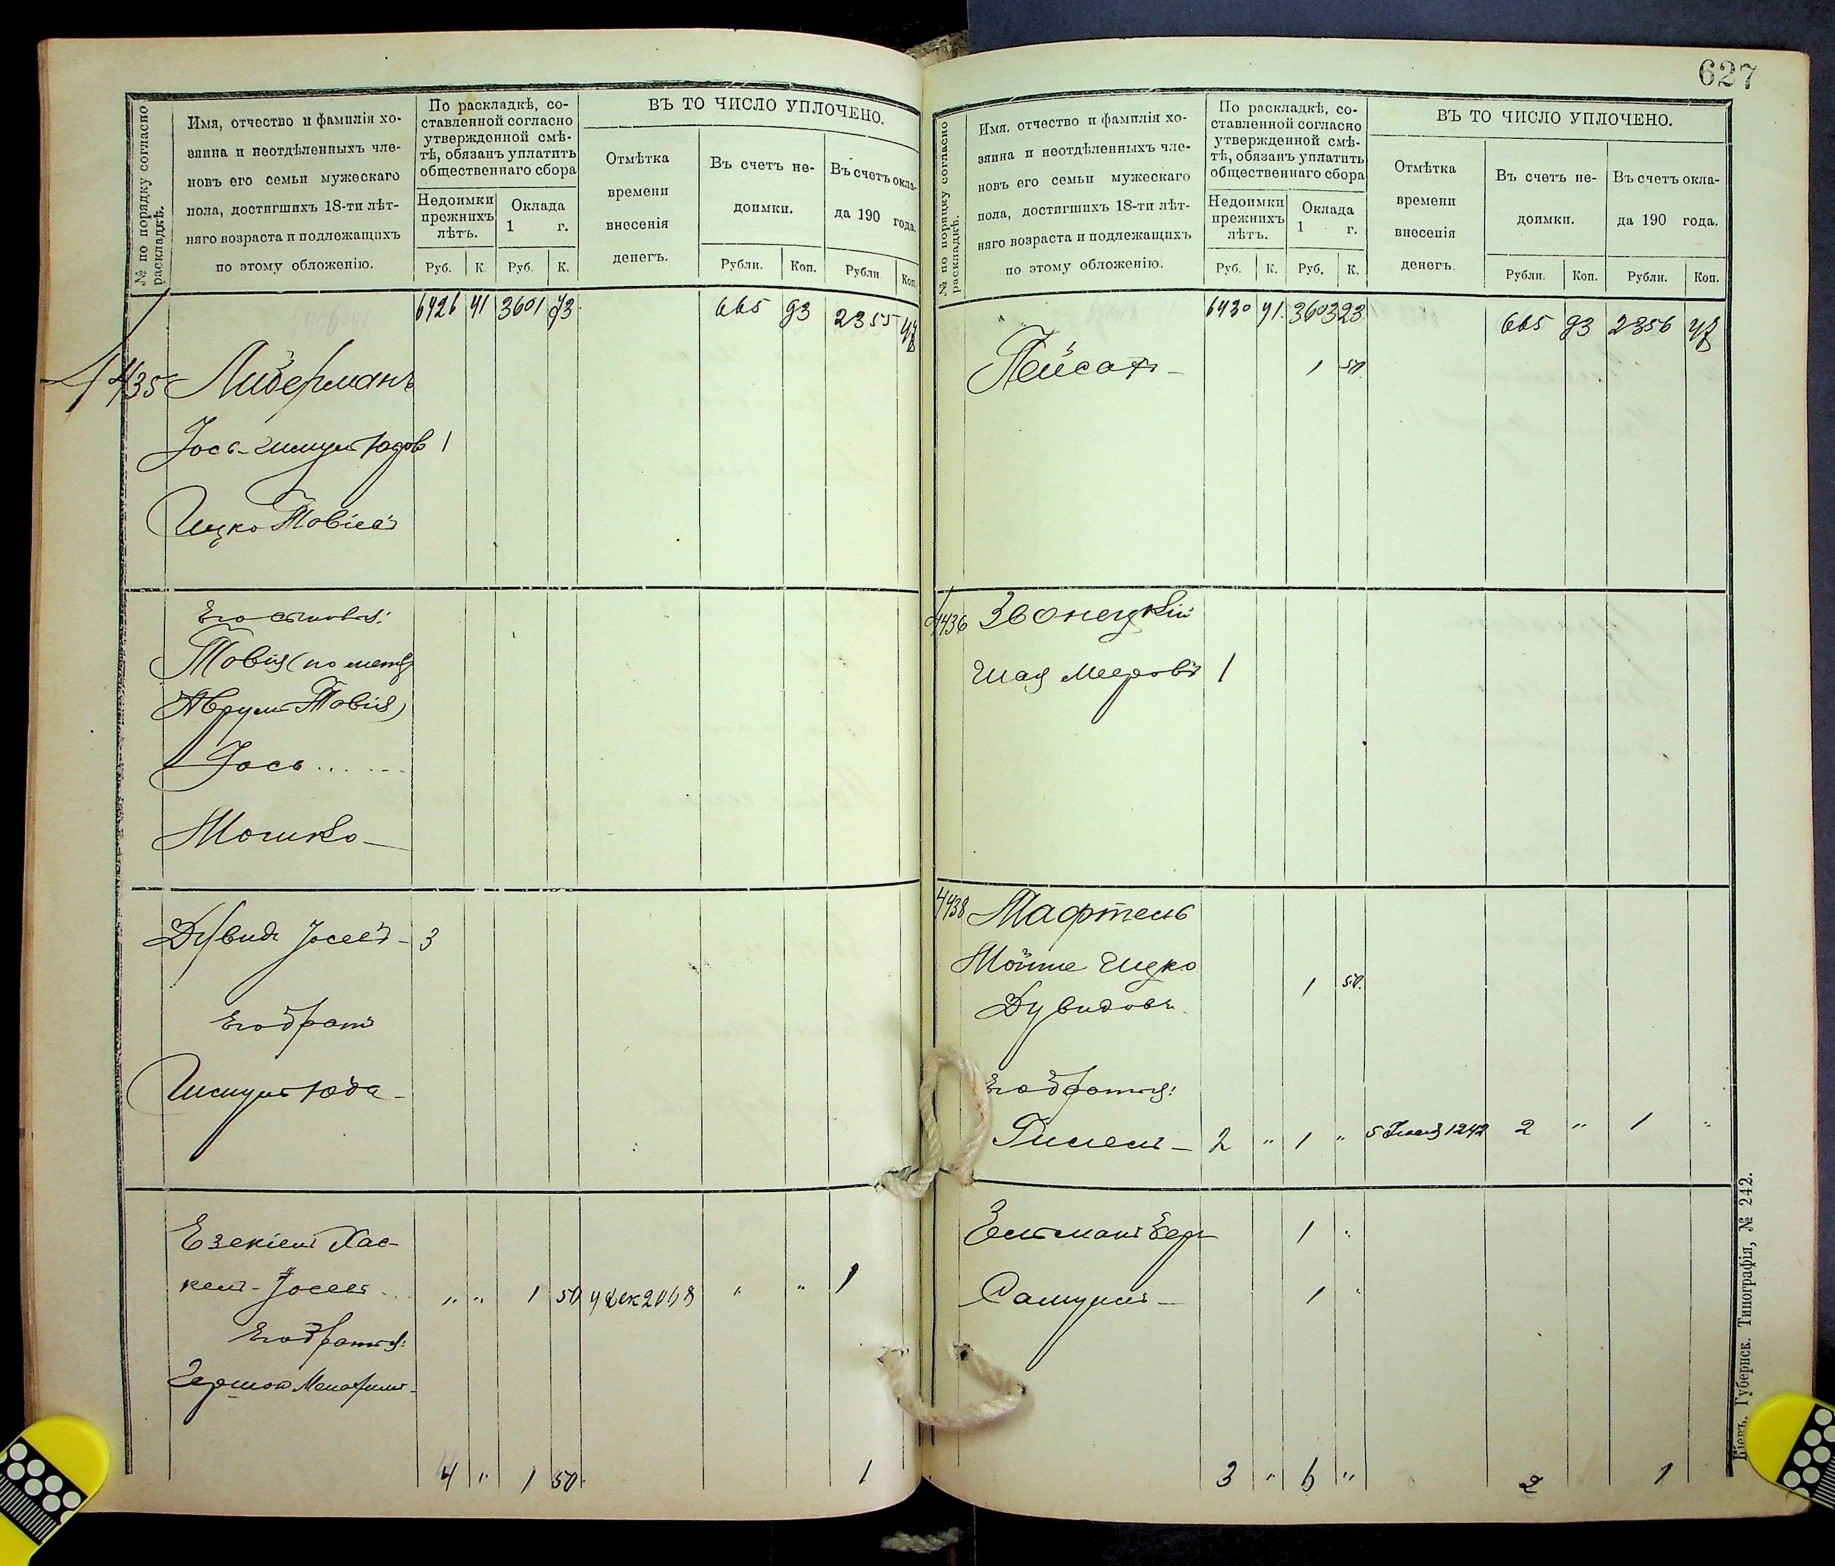 627
№ по порядку согласно раскладкѣ.
Имя, отчество и фамилія хо-
зяина и неотдѣленныхъ чле-
новъ его семьи мужескаго
пола, достигшихъ 18-ти лѣт-
няго возраста и подлежащихъ
по этому обложенію.
По раскладкѣ, со-
ставленной согласно
утвержденной смѣ-
тѣ, обязанъ уплатить
общественнаго сбора
Недоимки
прежнихъ
лѣтъ.
Оклада
1 г.
Руб. К. Руб. К.
ВЪ ТО ЧИСЛО УПЛОЧЕНО.
Отмѣтка
времени
внесенія
денегъ.
Въ счетъ не-
доимки.
Въ счетъ окла-
да 190 года.
Рубли. Коп. Рубли Коп.
6426 41 3601 73 665 93 2355 47
4435 Либерманъ
Іось-Шмуль Юдов 1
Ицко Товіевъ
Его сыновья:
Товія (по метр
Аврумъ Товія)
Іось
Мошко
Дувидъ Іосевъ 3
Его братъ
Шмуль Юда
Езекіель Хас-
кель-Іосев
" " 1 50 4 Дек 2068 " " 1
Его братья:
Гершон
4 " 1 50 1
№ по порядку согласно раскладкѣ.
Имя, отчество и фамилія хо-
зяина и неотдѣленныхъ чле-
новъ его семьи мужескаго
пола, достигшихъ 18-ти лѣт-
няго возраста и подлежащихъ
по этому обложенію.
По раскладкѣ, со-
ставленной согласно
утвержденной смѣ-
тѣ, обязанъ уплатить
общественнаго сбора
Недоимки
прежнихъ
лѣтъ.
Оклада
1 г.
Руб. К. Руб. К.
ВЪ ТО ЧИСЛО УПЛОЧЕНО.
Отмѣтка
времени
внесенія
денегъ.
Въ счетъ не-
доимки.
Въ счетъ окла-
да 190 года.
Рубли. Коп. Рубли. Коп.
6430 41 3603 23 665 93 2356 47
Пейсах 1 50
4436 Звонецкій
Шая Мееровъ 1
4438 Мафтель
Мойше Ицко
1 50
Дувидовъ
Его братья:
Гилель 2 " 1 " 1242 2 " 1 "
Зельман Бер 1 "
Самуилъ 1 "
3 " 6 " 2 1
Кіевъ. Губернск. Типографія, № 242.